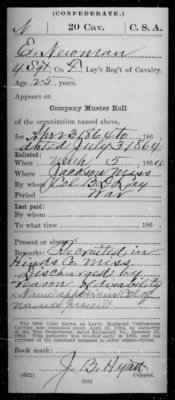 (CONFEDERATE.)
N 20 Cav. C. S. A.
E. Newman
4 Sgt, Co. F, Lay's Reg't of Cavalry.
Age 25 years.
Appears on
Company Muster Roll
of the organization named above,
for Apr 3 1864 to, 186
dated July 31 1864.
Enlisted:
When Mch 5, 1864
Where Jackson Miss
By whom Col B. D. Lay
Period War
Last paid:
By whom
To what time, 186
Present or absent
Remarks: Recruited in
Hinds Co Miss
Discharged by
reason of disability
Name appears in Col of
names present
The 20th (also known as Lay's) Regiment Confederate
Cavalry was organized about April 25, 1864, by authority of
the War Department
1864. This authority was revoked early in 1865, and the
companies of the command assigned to other organizations.
Book mark:
J. B. Hyatt
(642) Copyist.